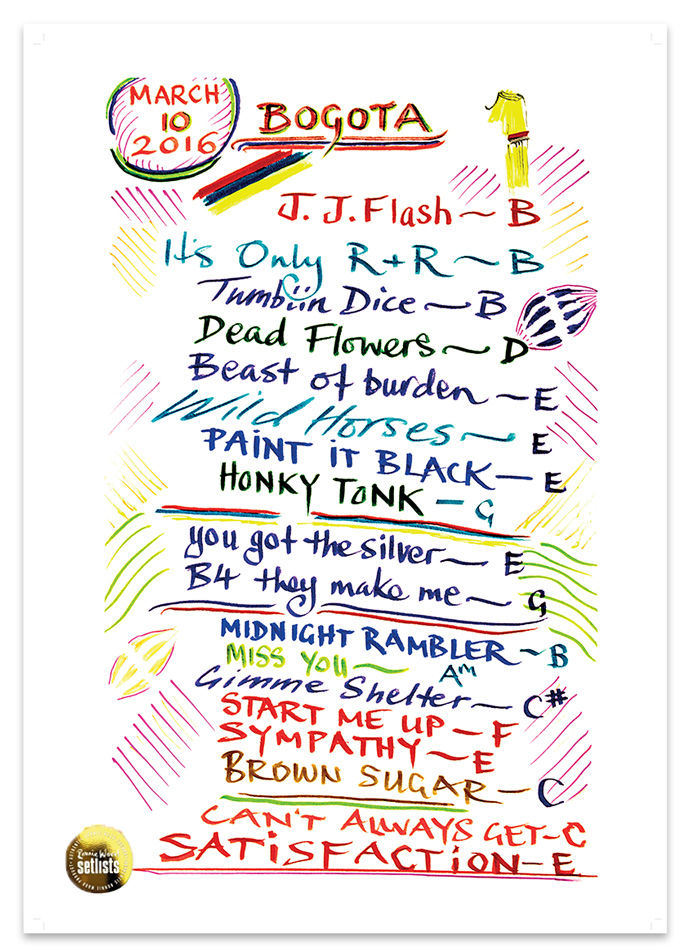 MARCH
10
2016
BOGOTA
1
J.J. Flash ~ B
It's Only R+R ~ B
Tumbliin Dice ~ B
Dead Flowers ~ D
Beast of burden ~ E
Wild Horses ~ E
PAINT iT BLACK — E
HONKY TONK - G
you got the silver — E
B4 they make me ~ G
MIDNIGHT RAMBLER ~ B
MISS YOU ~ Am
Gimme Shelter ~ C#
START ME UP - F
SYMPATHY ~ E
BROWN SUGAR — C
CAN'T ALWAYS GET - C
SATiSFACTiON - E
Ronnie Wood
setlists